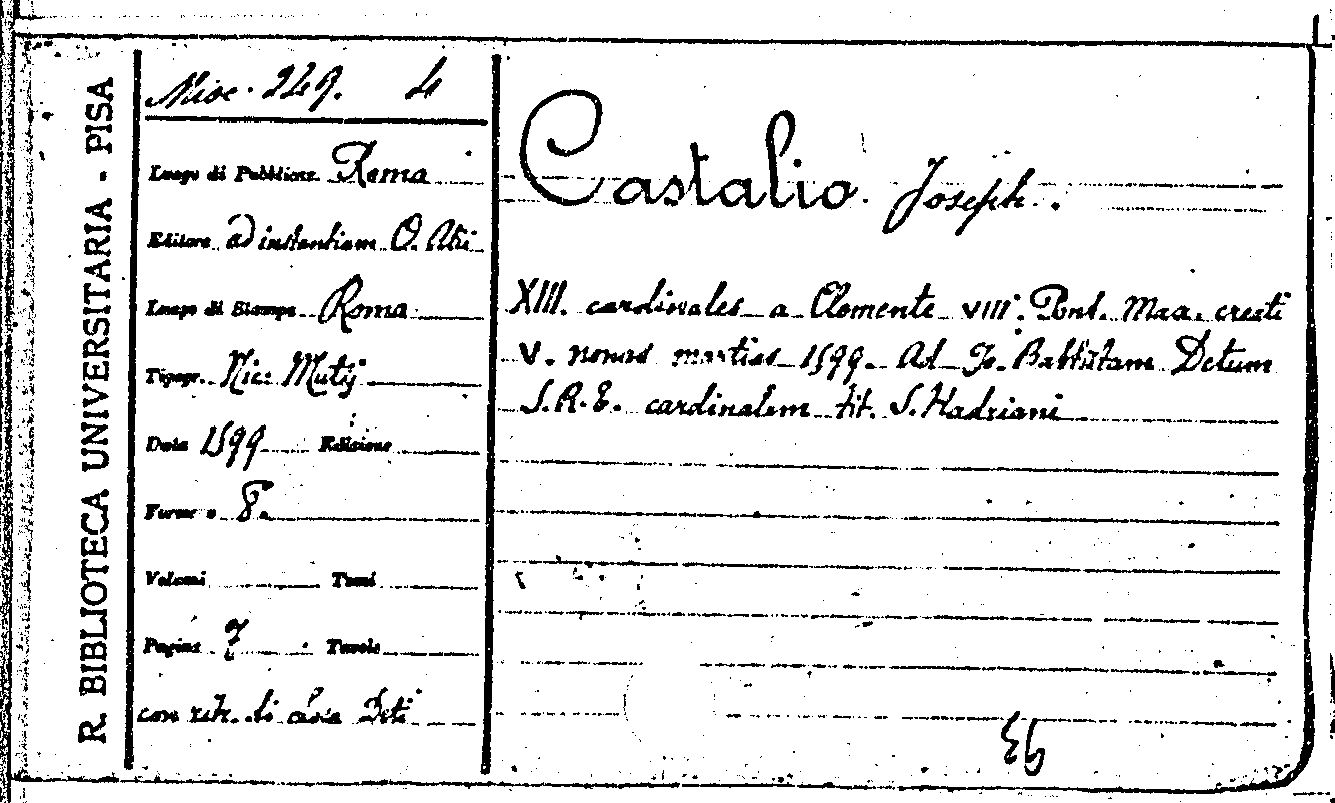 R. BIBLIOTECA UNIVERSITARIA - PISA
Misc. 249. 4
Luogo di Pubblicaz. Roma
Editore ad instantiam O. Atii
Luogo di Stampa Roma
Tipogr. Nic: Mutij
Data 1599 Edizione
Formato 8.
Volumi Tomi
Pagine 7 Tavole
con ritr. di casa Deti
Castalio Joseph.
XIII. cardinales a Clemente VIII. Pont. Max. creati
V. nonas martias 1599. Ad Jo. Babtistam Detum
S.R.E. cardinalem tit. S. Hadriani